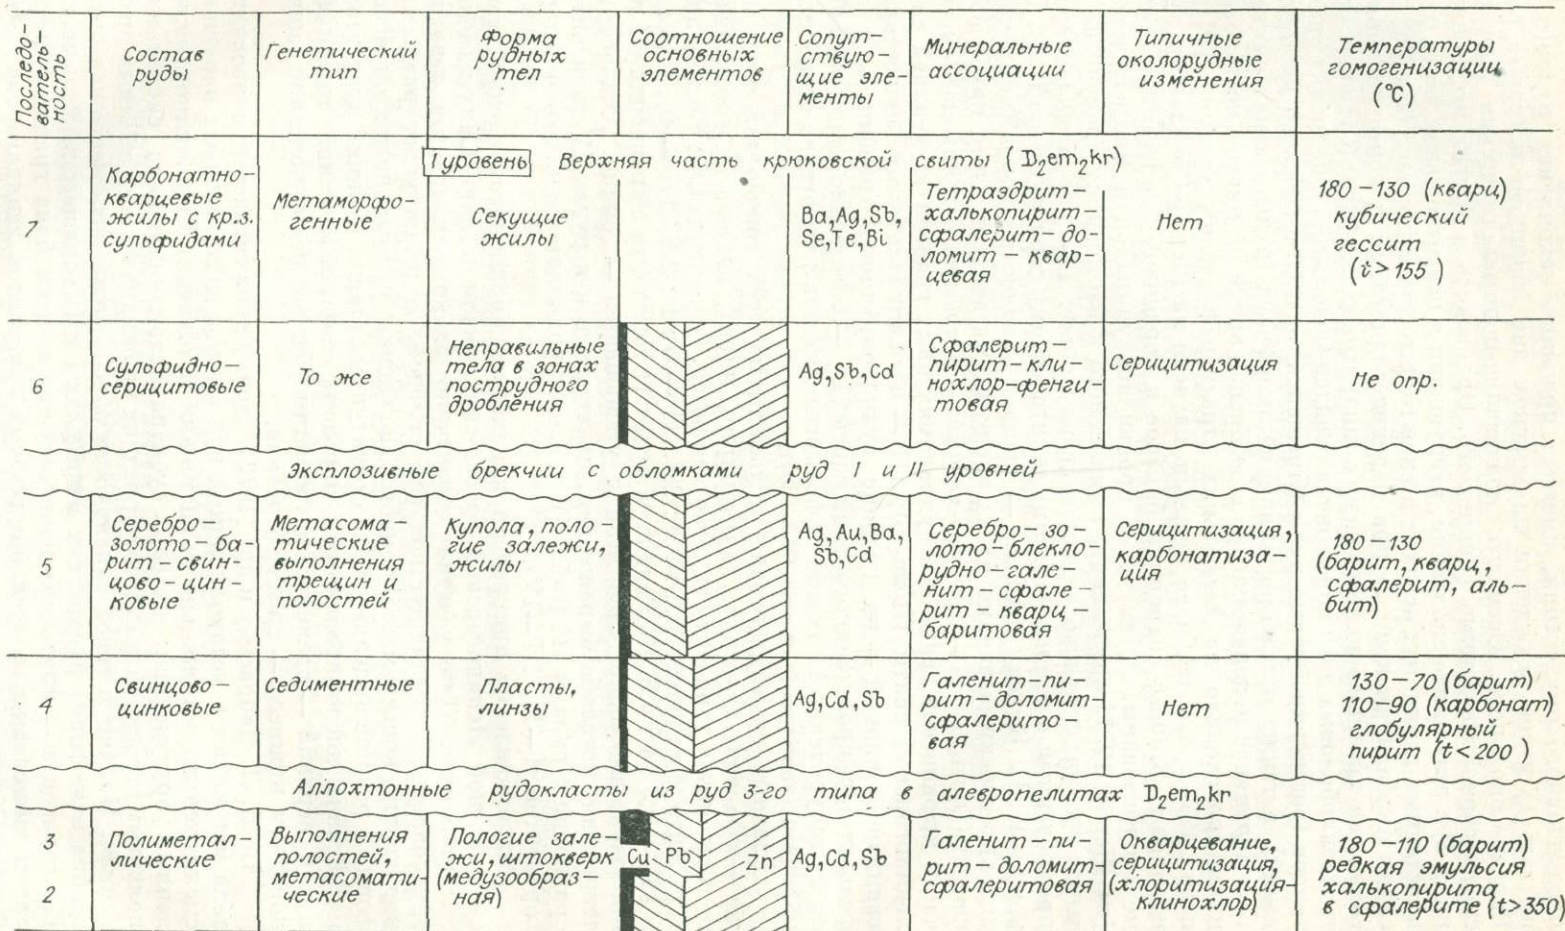 Последо-
ватель-
ность
Состав
руды
Генетический
тип
Форма
рудных
тел
Соотношение
основных
элементов
Сопут-
ствую-
щие эле-
менты
Минеральные
ассоциации
Типичные
околорудные
изменения
Температуры
гомогенизации
(°С)
I уровень Верхняя часть крюковской свиты (D₂em₂kr)
7
Карбонатно-
кварцевые
жилы с кр.з.
сульфидами
Метаморфо-
генные
Секущие
жилы
Ba, Ag, Sb,
Se, Te, Bi
Тетраэдрит-
халькопирит-
сфалерит-до-
ломит-квар-
цевая
Нет
180-130 (кварц)
кубический
гессит
(t>155)
6
Сульфидно-
серицитовые
То же
Неправильные
тела в зонах
пострудного
дробления
Ag, Sb, Cd
Сфалерит-
пирит-кли-
нохлор-фенги-
товая
Серицитизация
Не опр.
Эксплозивные брекчии с обломками руд I и II уровней
5
Серебро-
золото-ба-
рит-свин-
цово-цин-
ковые
Метасома-
тические
выполнения
трещин и
полостей
Купола, поло-
гие залежи,
жилы
Ag, Au, Ba,
Sb, Cd
Серебро-зо-
лото-блекло-
рудно-гале-
нит-сфале-
рит-кварц-
баритовая
Серицитизация,
карбонатиза-
ция
180-130
(барит, кварц,
сфалерит, аль-
бит)
4
Свинцово-
цинковые
Седиментные
Пласты,
линзы
Ag, Cd, Sb
Галенит-пи-
рит-доломит-
сфалерито-
вая
Нет
130-70 (барит)
110-90 (карбонат)
глобулярный
пирит (t<200)
Аллохтонные рудокласты из руд 3-го типа в алевропелитах D₂em₂kr
3
2
Полиметал-
лические
Выполнения
полостей,
метасомати-
ческие
Пологие зале-
жи, штокверк
(медузообраз-
ная)
Cu Pb Zn
Ag, Cd, Sb
Галенит-пи-
рит-доломит-
сфалеритовая
Окварцевание,
серицитизация,
(хлоритизация-
клинохлор)
180-110 (барит)
редкая эмульсия
халькопирита
в сфалерите (t>350)